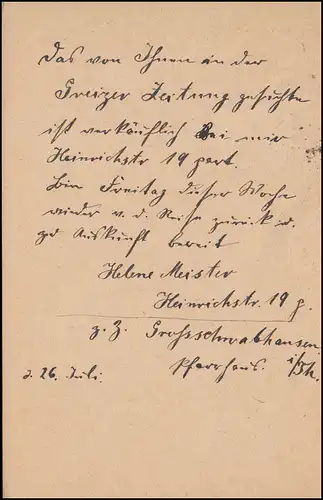 Das von Ihnen in der
Greizer Zeitung gesuchte
ist verkäuflich bei mir
Heinrichstr 19 part.
bin Freitag dieser Woche
wieder v. d. Reise zurück u.
zu Auskunft bereit
Helene Meister
Heinrichstr. 19 p.
z. Z. Grossschwabhausen
Pfarrhaus. i/Th.
d. 26. Juli.